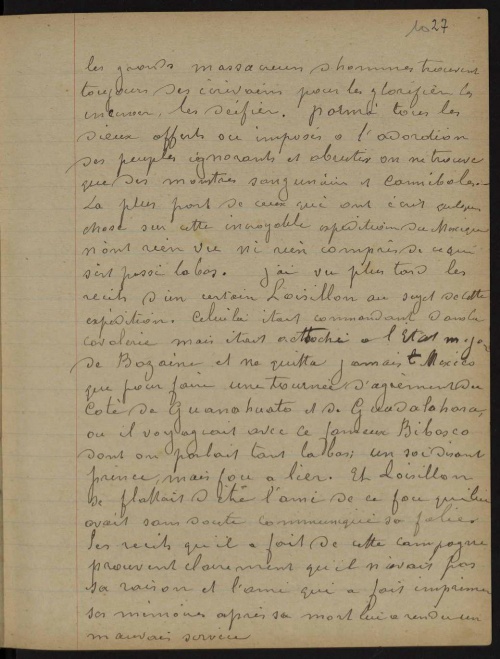 1027
les grands massacreurs d'hommes trouvent
toujours des écrivains pour les glorifier les
encenser, les déifier. parmi tous les
dieux offerts ou imposés a l'adordion
des peuples ignorants et abrutis on ne trouve
que des monstres sanguinaire et cannibales.
La plus part de ceux qui ont écrit quelques
chose sur cette incroyable expedition du Mexique
n'ont rien vu ni rien compris de ce qui
s'est passé labas. j'ai vu plus tard les
recits d'un certain Loisillon au sujet de cette
expédition. Celuila etait commandant dans la
cavalerie mais etait attaché a l'Etat major
de Bazaine et ne quitta jamais Mexico
que pour faire une tournée d'agrement du
Coté de Guanahuato et de Guadalahara,
ou il voyageait avec ce fameux Bibesco
dont on parlait tant labas; un soi disant
prince, mais fou a lier. Et Loisillon
se flattait d'être l'ami de ce fou qui lui
avait sans doute communiqué sa folie.
Les recits qu'il a fait de cette campagne
prouvent clairement qu'il n'avait pas
sa raison et l'ami qui a fait imprimer
ses mémoires après sa mort lui a rendu un
mauvais service